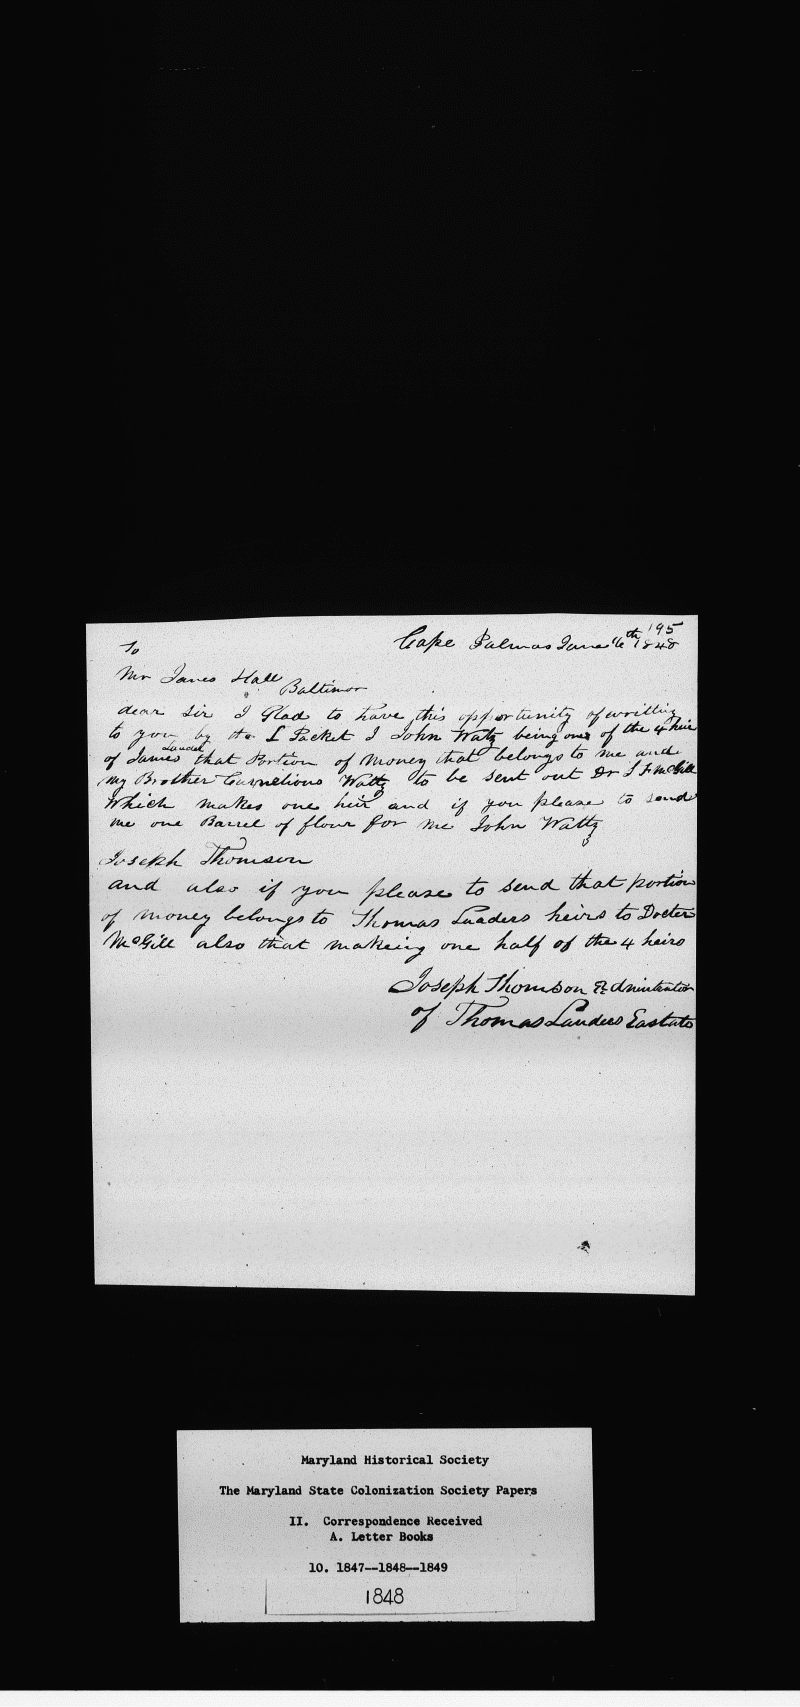 195
Cape Palmas June 16th 1848
To
Mr James Hall
Baltimor
dear Sir I Glad to have this opportunity of writting
to you by the L Packet I John Wattz being one of the 4 heir
of James Lauder that Portion of Money that belongs to me and
my Brother Carnelious Wattz to be sent out Dr S F McGill
Which makes one heir and if you please to send
me one Barrel of flour for me John Wattz
Joseph Thomson
and also if you please to send that portion
of money belongs to Thomas Lauders heirs to Docter
McGill also that makeing one half of the 4 heirs
Joseph Thomson
of Thomas Lauders Eastate
Maryland Historical Society
The Maryland State Colonization Society Papers
II. Correspondence Received
A. Letter Books
10. 1847--1848--1849
1848